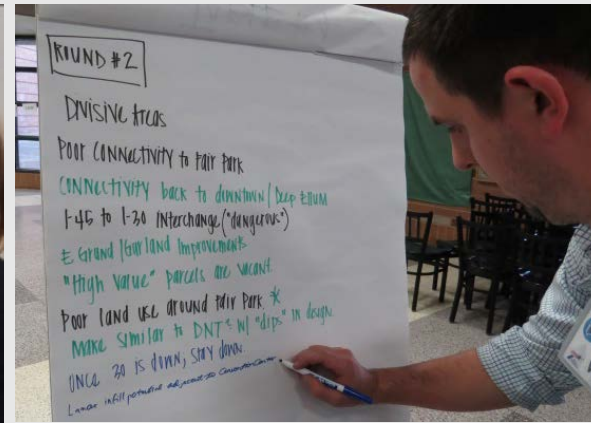 ROUND #2
Divisive Areas
Poor connectivity to Fair Park
Connectivity back to downtown / Deep Ellum
I-45 to I-30 Interchange ("dangerous")
E Grand / Garland Improvements
"High value" parcels are vacant
Poor land use around Fair Park *
Make similar to DNT w/ "dips" in design
Once 30 is down, stay down
Lamar infill potential adjacent to Convention Center